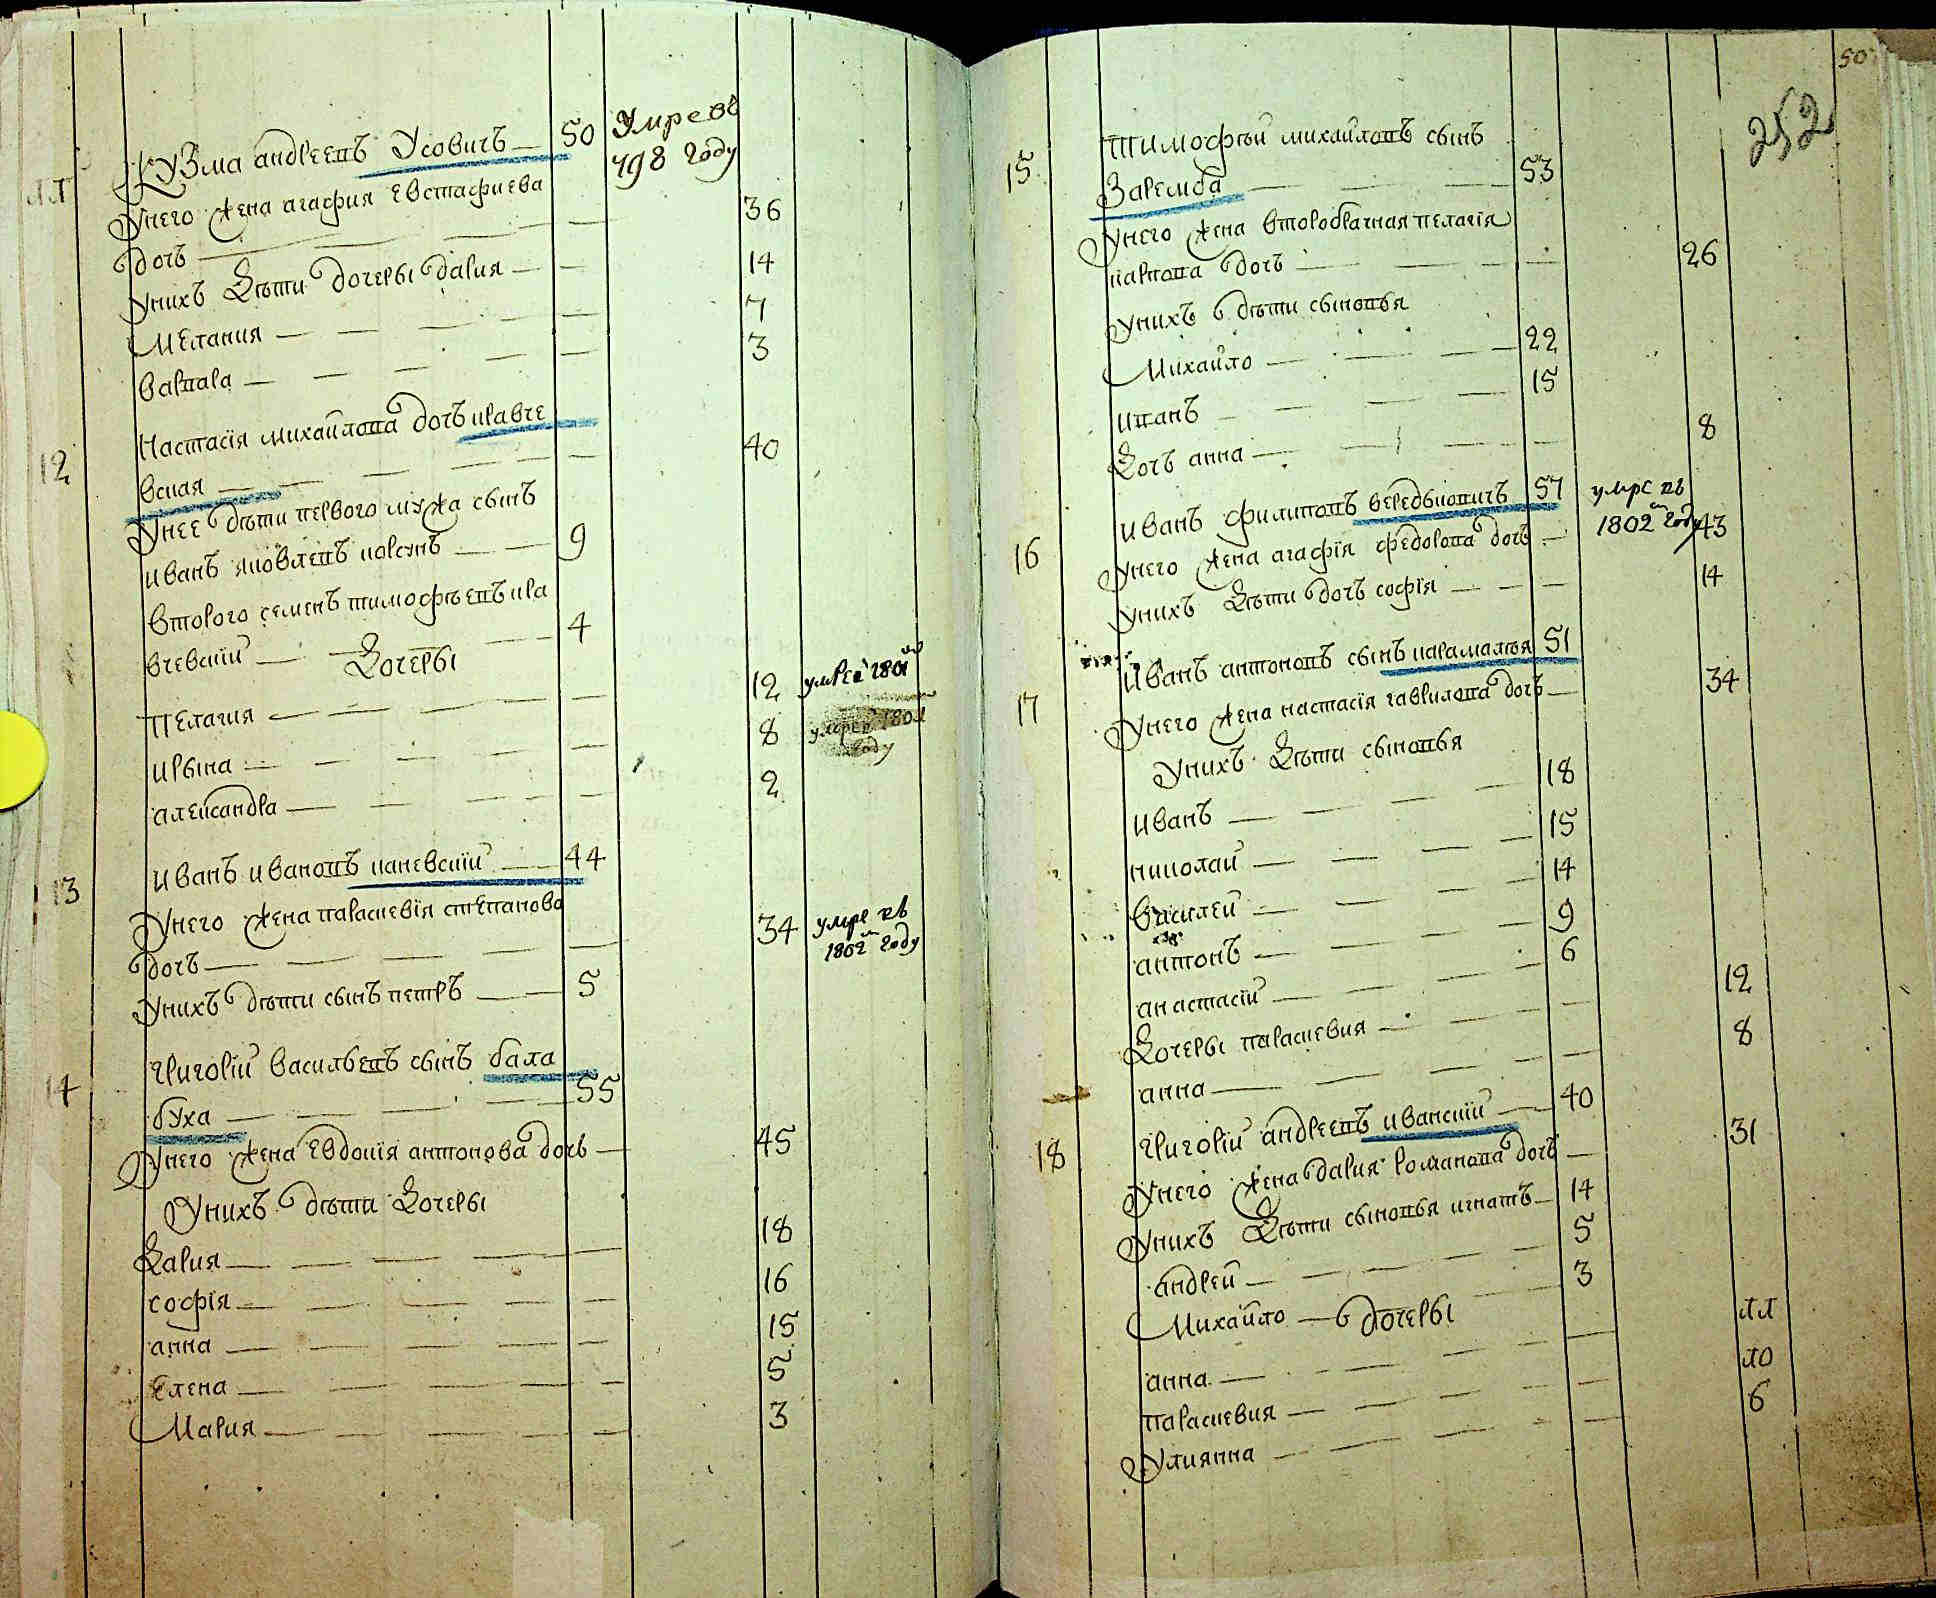 11
Кузма андреевъ Усовичъ — 50 Умре въ
798 году
Унего жена агафия Евстафиева
дочь — 36
Унихъ Дѣти дочеры дария — 14
Мелания — 7
варвара — 3
12
Настасїя михайлова дочь кравче
вская — 40
Унее дѣти первого мужа сынъ
иванъ яковлевъ корсунъ — 9
второго семенъ тимофѣевъ кра
вчевский — 4
Дочеры
Пелагия — 12 умре 1801
ирына — 8 умре 1801
году
александра — 2
13
иванъ ивановъ каневский — 44
Унего жена параскевїя степанова
дочь — 34 умре въ
1802 году
Унихъ дѣти сынъ петръ — 5
14
григорїй васильевъ сынъ бала
буха — 55
Унего жена Евдокїя антонова дочь — 45
Унихъ дѣти Дочеры
Дария — 18
софїя — 16
анна — 15
Елена — 5
Мария — 3
50
252
15
Тимофѣй михайловъ сынъ
Заремба — 53
Унего жена второбрачная пелагїя
карпова дочь — 26
Унихъ дѣти сыновья
Михайло — 22
иванъ — 15
Дочь анна — 8
16
иванъ филиповъ 57 умре въ
1802 году
Унего жена агафїя федорова дочь — 43
Унихъ Дѣти дочь софїя — 14
17
иванъ антоновъ сынъ 51
Унего жена настасїя гаврилова дочь — 34
Унихъ Дѣти сыновья
иванъ — 18
николай — 15
василей — 14
антонъ — 9
анастасїй — 6
Дочеры параскевия — 12
анна — 8
18
григорїй андреевъ иванский — 40
Унего жена дария романова дочь — 31
Унихъ Дѣти сыновья игнатъ — 14
андрей — 5
Михайло — 3
дочеры
анна — 11
параскевия — 10
Улиянна — 6